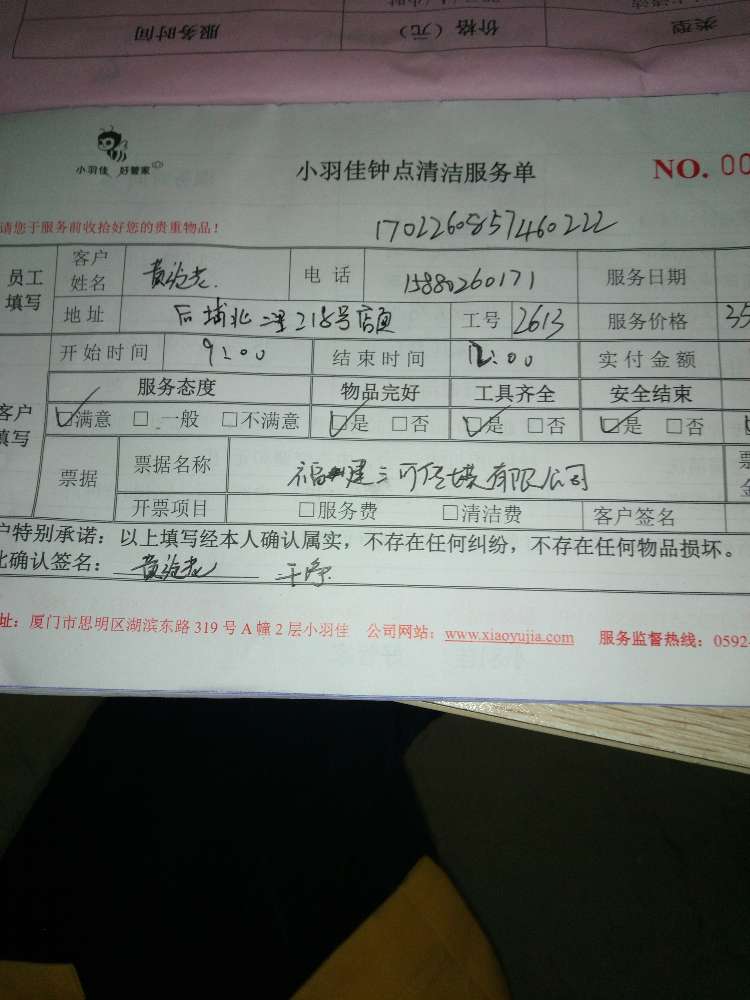 服务时间 价格（元） 类型
小羽佳 好管家
小羽佳钟点清洁服务单 NO. 00
请您于服务前收拾好您的贵重物品！ 1702260857460222
员工填写 客户姓名 黄 电话 15880260171 服务日期
地址 后埔北二里218号店面 工号 2613 服务价格 35
开始时间 9:00 结束时间 12:00 实付金额
客户填写 服务态度 物品完好 工具齐全 安全结束
☑满意 □一般 □不满意 ☑是 □否 ☑是 □否 ☑是 □否
票据 票据名称 福建三可传媒有限公司 票
开票项目 □服务费 □清洁费 客户签名
户特别承诺：以上填写经本人确认属实，不存在任何纠纷，不存在任何物品损坏。
此确认签名： 黄 干净
址：厦门市思明区湖滨东路 319 号 A 幢 2 层小羽佳 公司网站：www.xiaoyujia.com 服务监督热线：0592